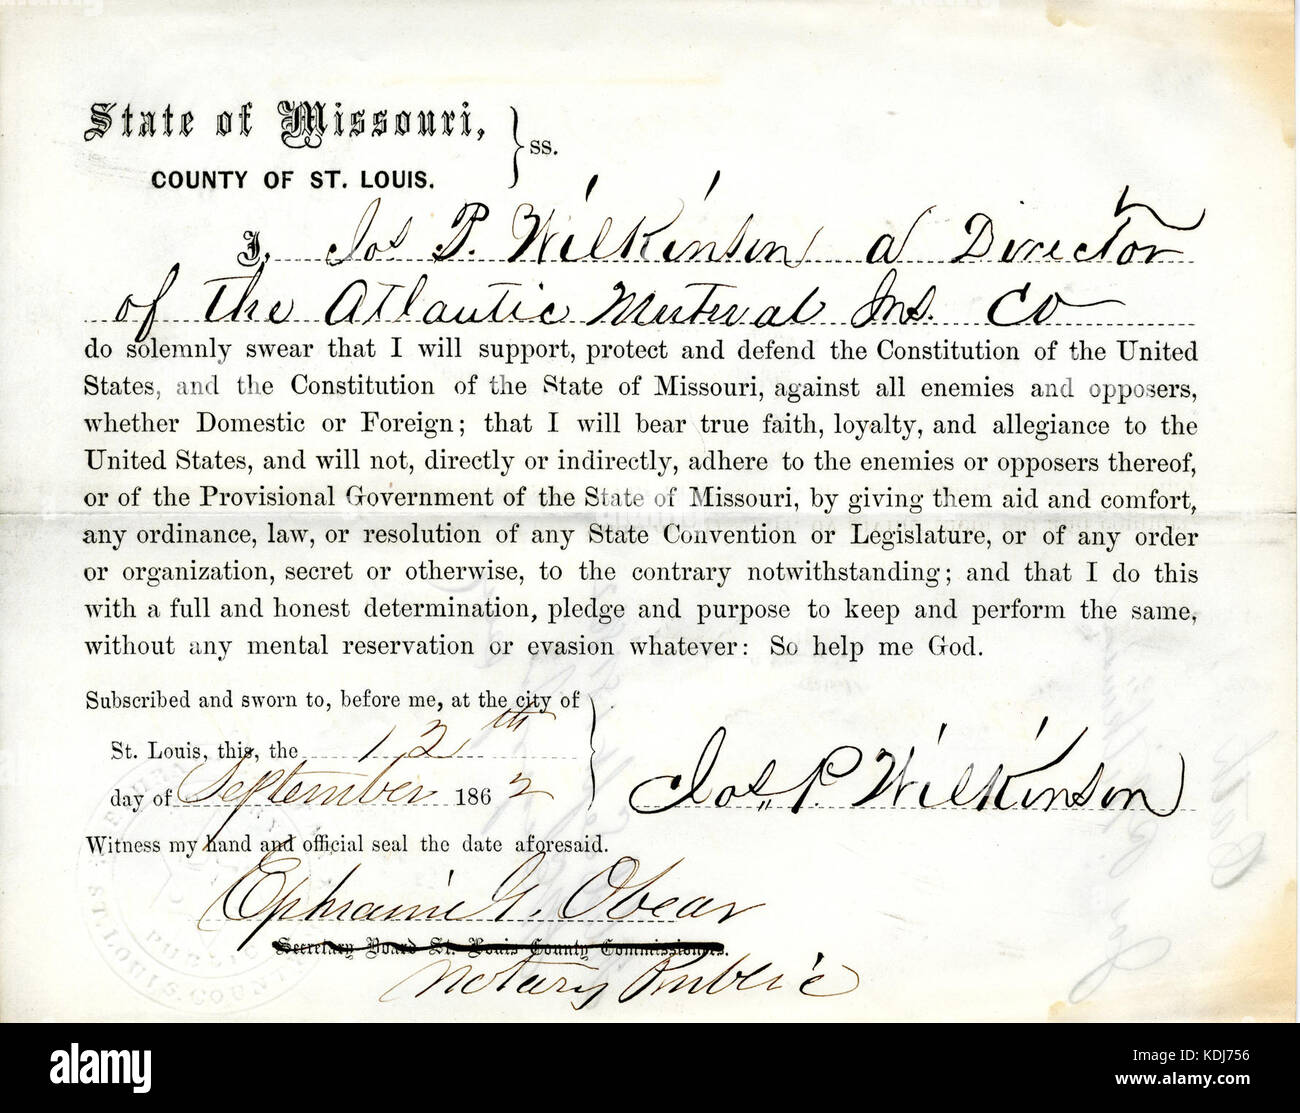 State of Missouri,
COUNTY OF ST. LOUIS. } ss.
I, Jos P. Wilkinson a Director
of the Atlantic Mutual Ins. Co
do solemnly swear that I will support, protect and defend the Constitution of the United
States, and the Constitution of the State of Missouri, against all enemies and opposers,
whether Domestic or Foreign; that I will bear true faith, loyalty, and allegiance to the
United States, and will not, directly or indirectly, adhere to the enemies or opposers thereof,
or of the Provisional Government of the State of Missouri, by giving them aid and comfort,
any ordinance, law, or resolution of any State Convention or Legislature, or of any order
or organization, secret or otherwise, to the contrary notwithstanding; and that I do this
with a full and honest determination, pledge and purpose to keep and perform the same,
without any mental reservation or evasion whatever: So help me God.
Subscribed and sworn to, before me, at the city of
St. Louis, this, the 12th
day of September 1862
Jos. P. Wilkinson
Witness my hand and official seal the date aforesaid.
Ephraim G. Obear
Secretary Board St. Louis County Commissioners.
Notary Public
PUBLIC
ST. LOUIS. COUNTY
alamy
Image ID: KDJ756
www.alamy.com